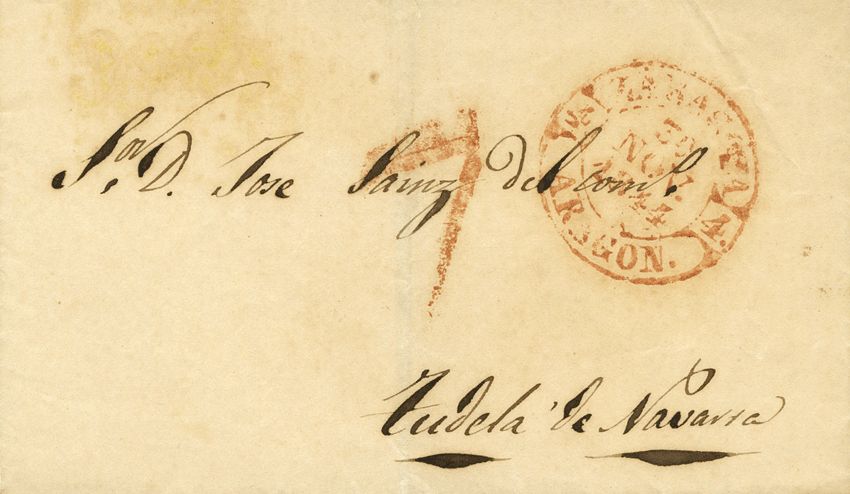 Sor. D. Jose Sainz del como.
7
ZARAGOZA
30
NOV.
1844
ARAGON.
Tudela de Navarra